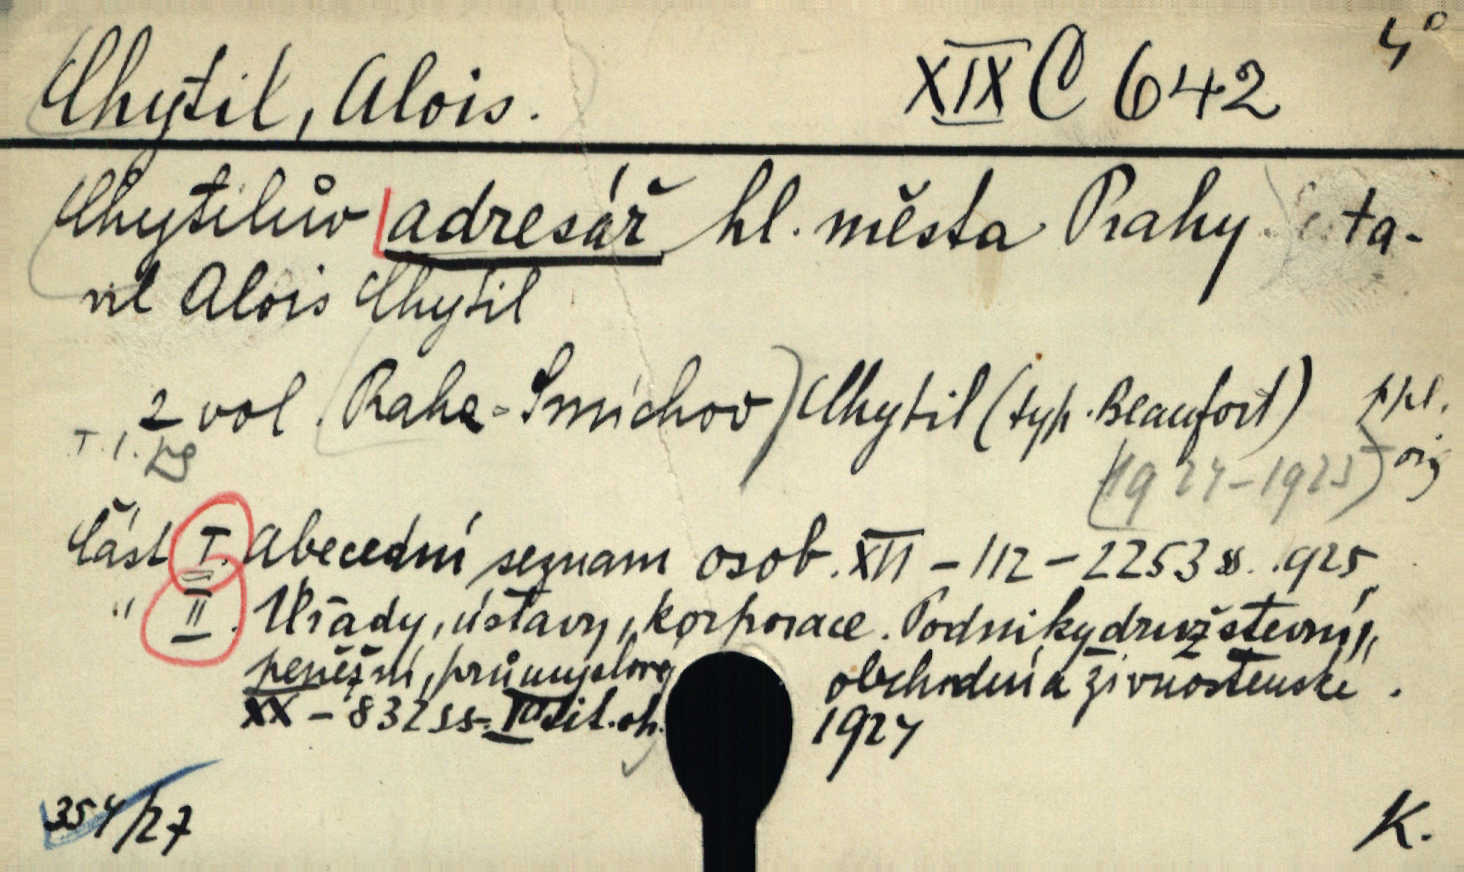 4°
Chytil, Alois. XIX C 642
Chytilův adresář hl. města Prahy ta-
vil Alois Chytil
2 vol. Praha-Smíchov) Chytil (typ. Beaufort) ppl.
T. I. (1924-1925) orig
Část I. Abecední seznam osob. XII - 112 - 2253 ss. 1925
" II. Úřady, ústavy, korporace. Podniky družstevní,
peněžní, průmyslové obchodní a živnostenské.
XX - 832 ss. tit. ob. 1924
354/27 K.